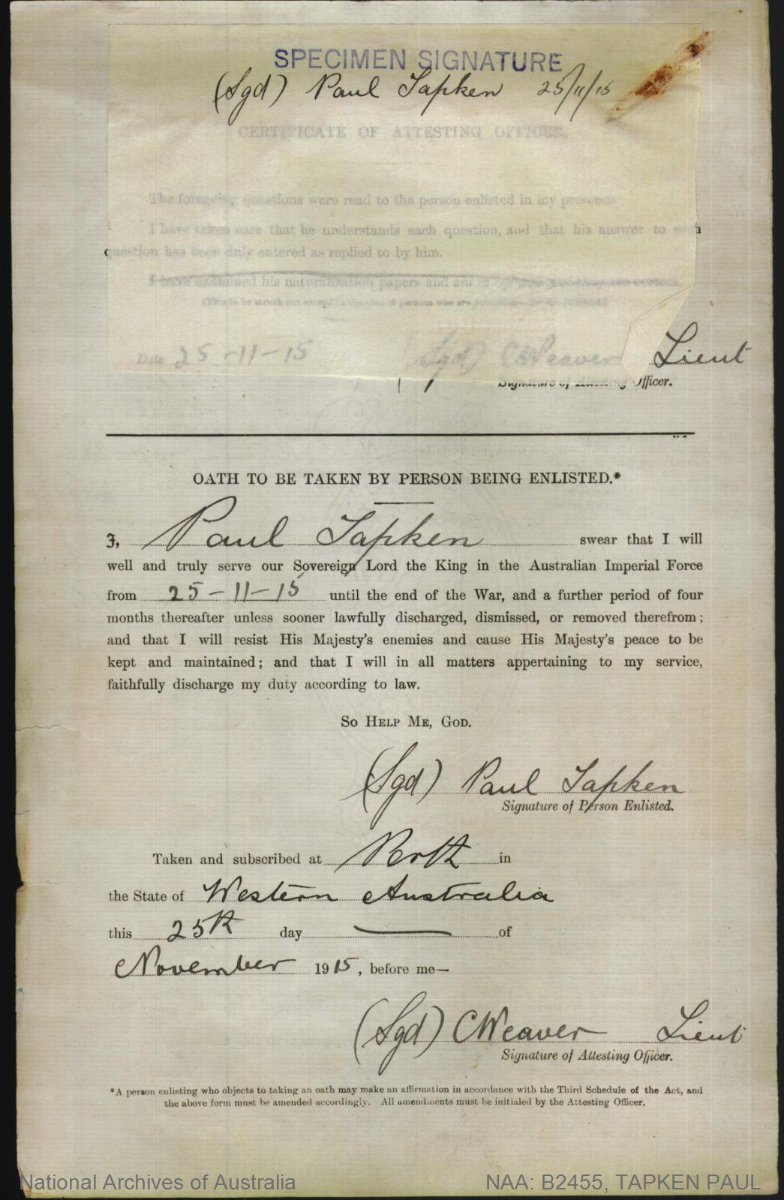 SPECIMEN SIGNATURE
(Sgd) Paul Tapken 25/11/15
CERTIFICATE OF ATTESTING OFFICER.
The foregoing questions were read to the person enlisted in my presence.
I have taken care that he understands each question, and that his answer to each
question has been duly entered as replied to by him.
I have examined his naturalisation papers and am of opinion
Date 25-11-15 (Sgd) CWeaver Lieut
Signature of Attesting Officer.
OATH TO BE TAKEN BY PERSON BEING ENLISTED.*
I, Paul Tapken swear that I will
well and truly serve our Sovereign Lord the King in the Australian Imperial Force
from 25-11-15 until the end of the War, and a further period of four
months thereafter unless sooner lawfully discharged, dismissed, or removed therefrom;
and that I will resist His Majesty's enemies and cause His Majesty's peace to be
kept and maintained; and that I will in all matters appertaining to my service,
faithfully discharge my duty according to law.
So Help Me, God.
(Sgd) Paul Tapken
Signature of Person Enlisted.
Taken and subscribed at Perth in
the State of Western Australia
this 25th day — of
November 1915, before me—
(Sgd) CWeaver Lieut
Signature of Attesting Officer.
*A person enlisting who objects to taking an oath may make an affirmation in accordance with the Third Schedule of the Act, and
the above form must be amended accordingly. All amendments must be initialed by the Attesting Officer.
National Archives of Australia NAA: B2455, TAPKEN PAUL